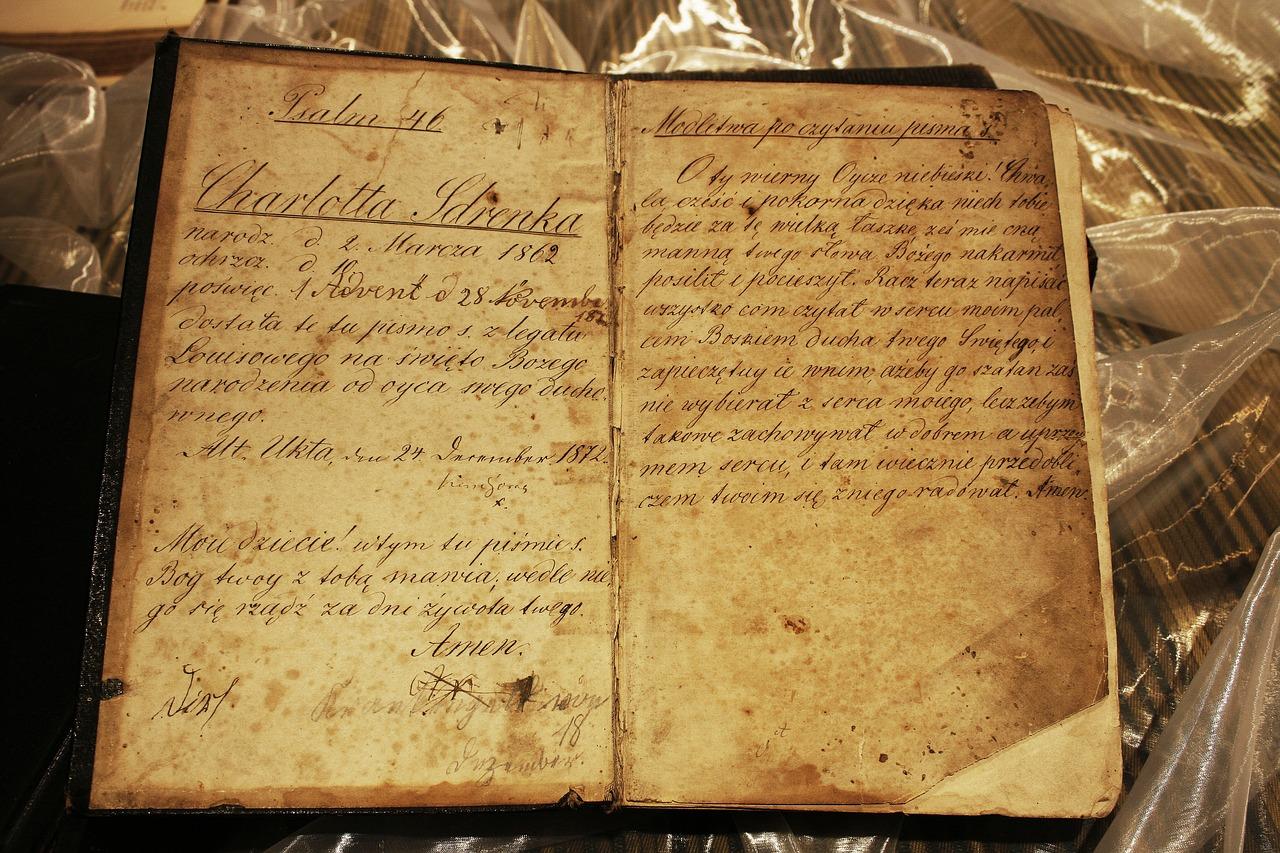 Psalm 46
Charlotta Sdrenka
narodz. d. 2. Marcza 1862
ochrzcz. d.
poświęc. 1 Advent d 28 Novembe
187
dostała te tu pismo s. z legatu
Louisowego na święto Bożego
narodzenia od oyca swego ducho,
wnego.
Alt. Ukta, den 24 December 1872.
Moie dziecie! wtym tu piśmie s.
Bog twoy z tobą mawia, wedle nie,
go się rządź za dni żywota twego.
Amen.
18
Dezember
Modlitwa po czytaniu pisma s.
O ty wierny Oycze niebieski! Chwa,
ła, cześć i pokorna dzięka niech tobie
będzie za tę wielką łaskę, żeś mie cną
manną twego słowa Bożego nakarmił
posilił i pocieszył. Racz teraz napisać
wszystko com czytał w sercu moim pal,
cem Boskiem ducha twego Swiętego, i
zapieczętuy ie wnim, ażeby go szatan zas
nie wybierał z serca moiego, lecz zebym
takowe zachowywał w dobrem a uprzey
mem sercu, i tam wiecznie przed obli,
czem twoim się zniego radował. Amen.